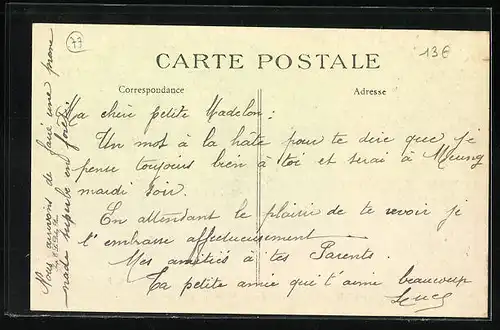 77
13€
CARTE POSTALE
Correspondance
Adresse
Ma chère petite Madelon :
Un mot à la hâte pour te dire que je
pense toujours bien à toi et serai à Meung
mardi soir.
En attendant le plaisir de te revoir je
t'embrasse affectueusement
Mes amitiés à tes Parents.
Ta petite amie qui t'aime beaucoup
Nous venons de faire une prome
nade superbe en forêt.